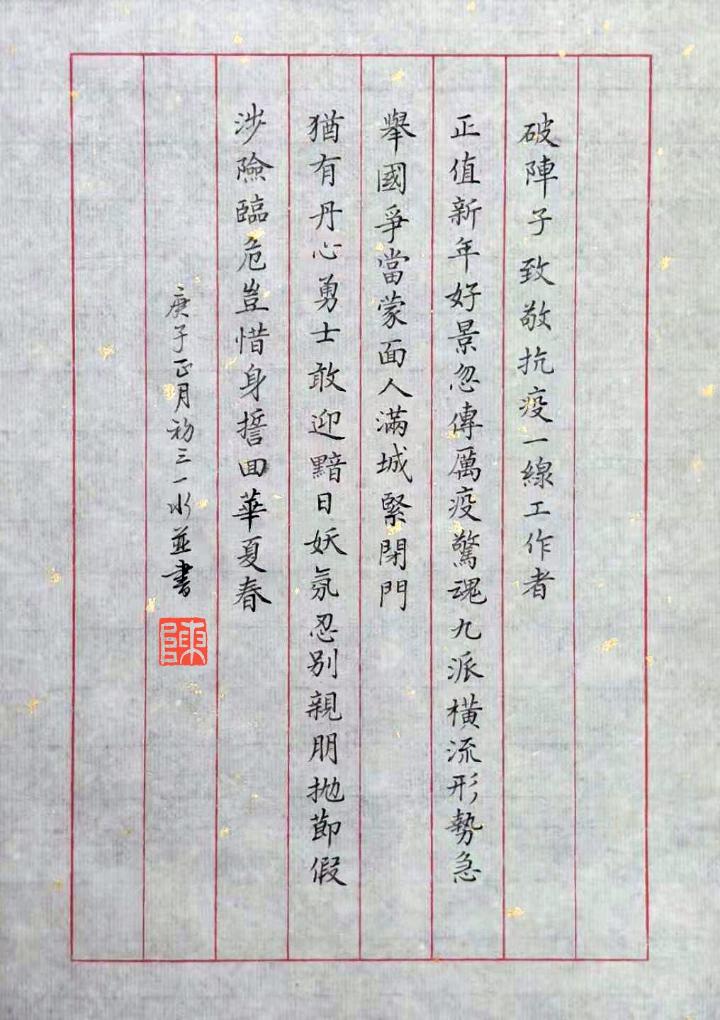 破陣子致敬抗疫一線工作者
正值新年好景忽傳厲疫驚魂九派橫流形勢急
舉國爭當蒙面人滿城緊閉門
猶有丹心勇士敢迎黯日妖氛忍別親朋拋節假
涉險臨危豈惜身誓回華夏春
庚子正月初三一水並書
陳